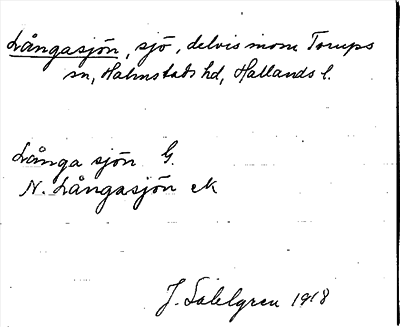 Långasjön, sjö, delvis inom Torups
sn, Halmstads hd, Hallands l.
Långa sjön G.
N. Långasjön ek
J. Sahlgren 1918